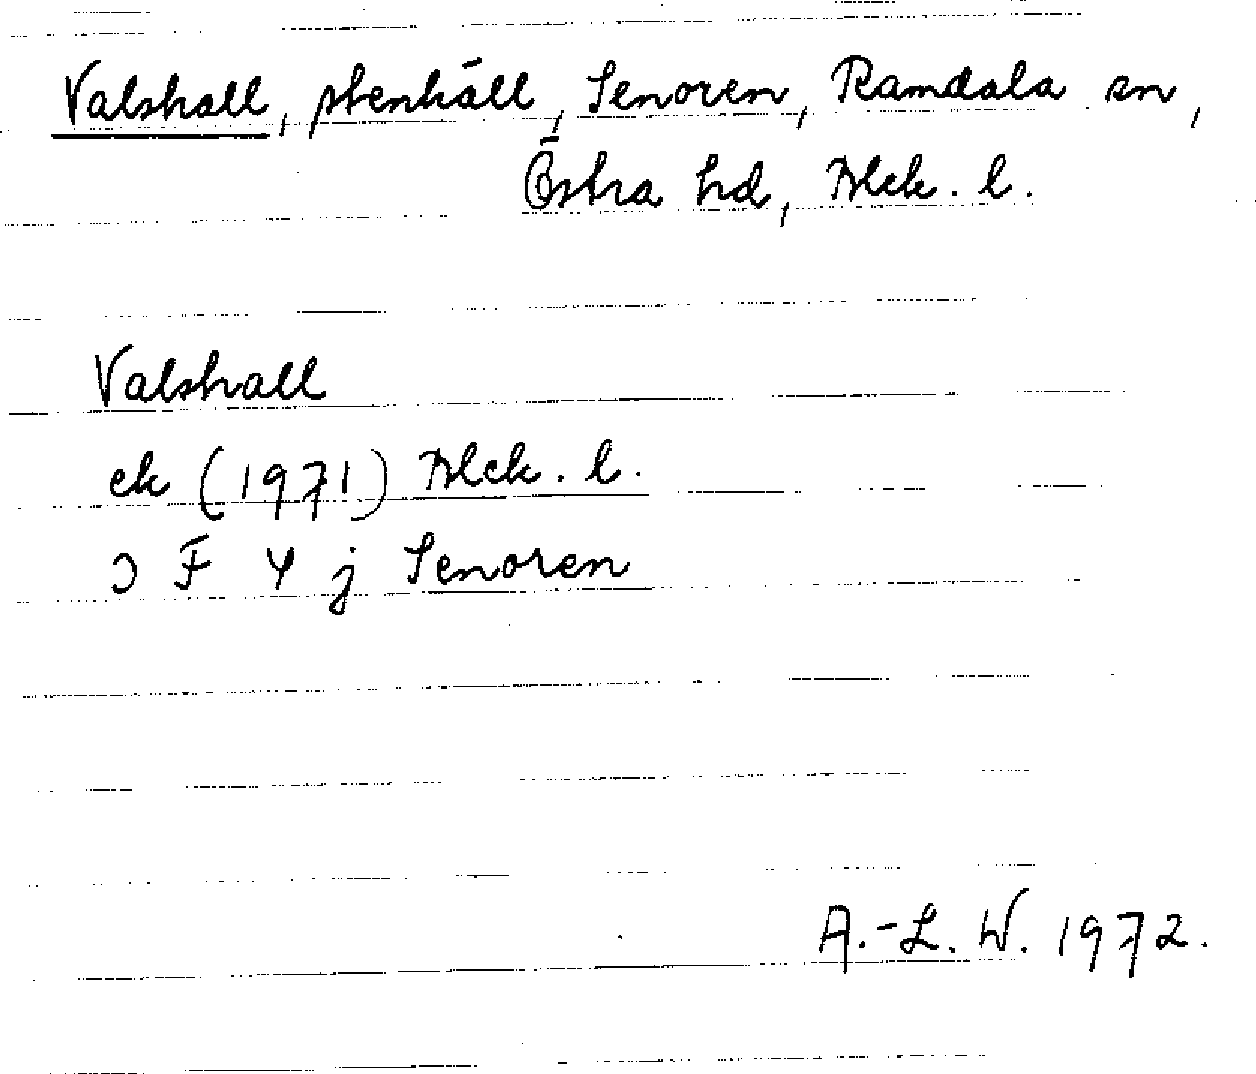 Valshall, stenhäll, Senoren, Ramdala sn,
Östra hd, Blek. l.
Valshall
ek (1971) Blek. l.
3 F 4 j Senoren
A.-L. W. 1972.